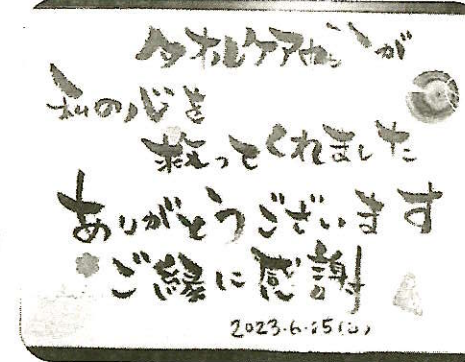 タオルケアサンが
私の心を
救ってくれました
ありがとうございます
ご縁に感謝
2023.6.15(木)